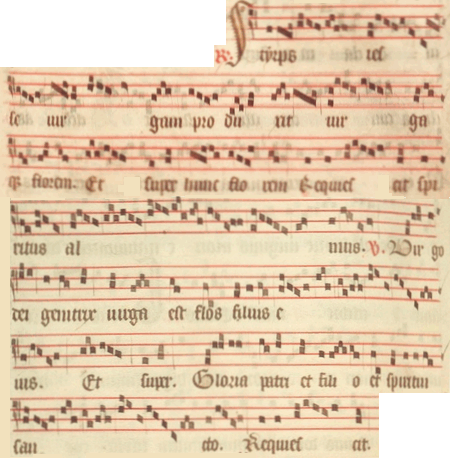 R. Styrps ies
se uir gam pro du xit uir ga
q3 florem. Et super hunc flo rem Requies cit spi
ritus al mus. V. Vir go
dei genitrix uirga est flos filius e
ius. Et super. Gloria patri et fili o et spiritui
san cto. Requies cit.